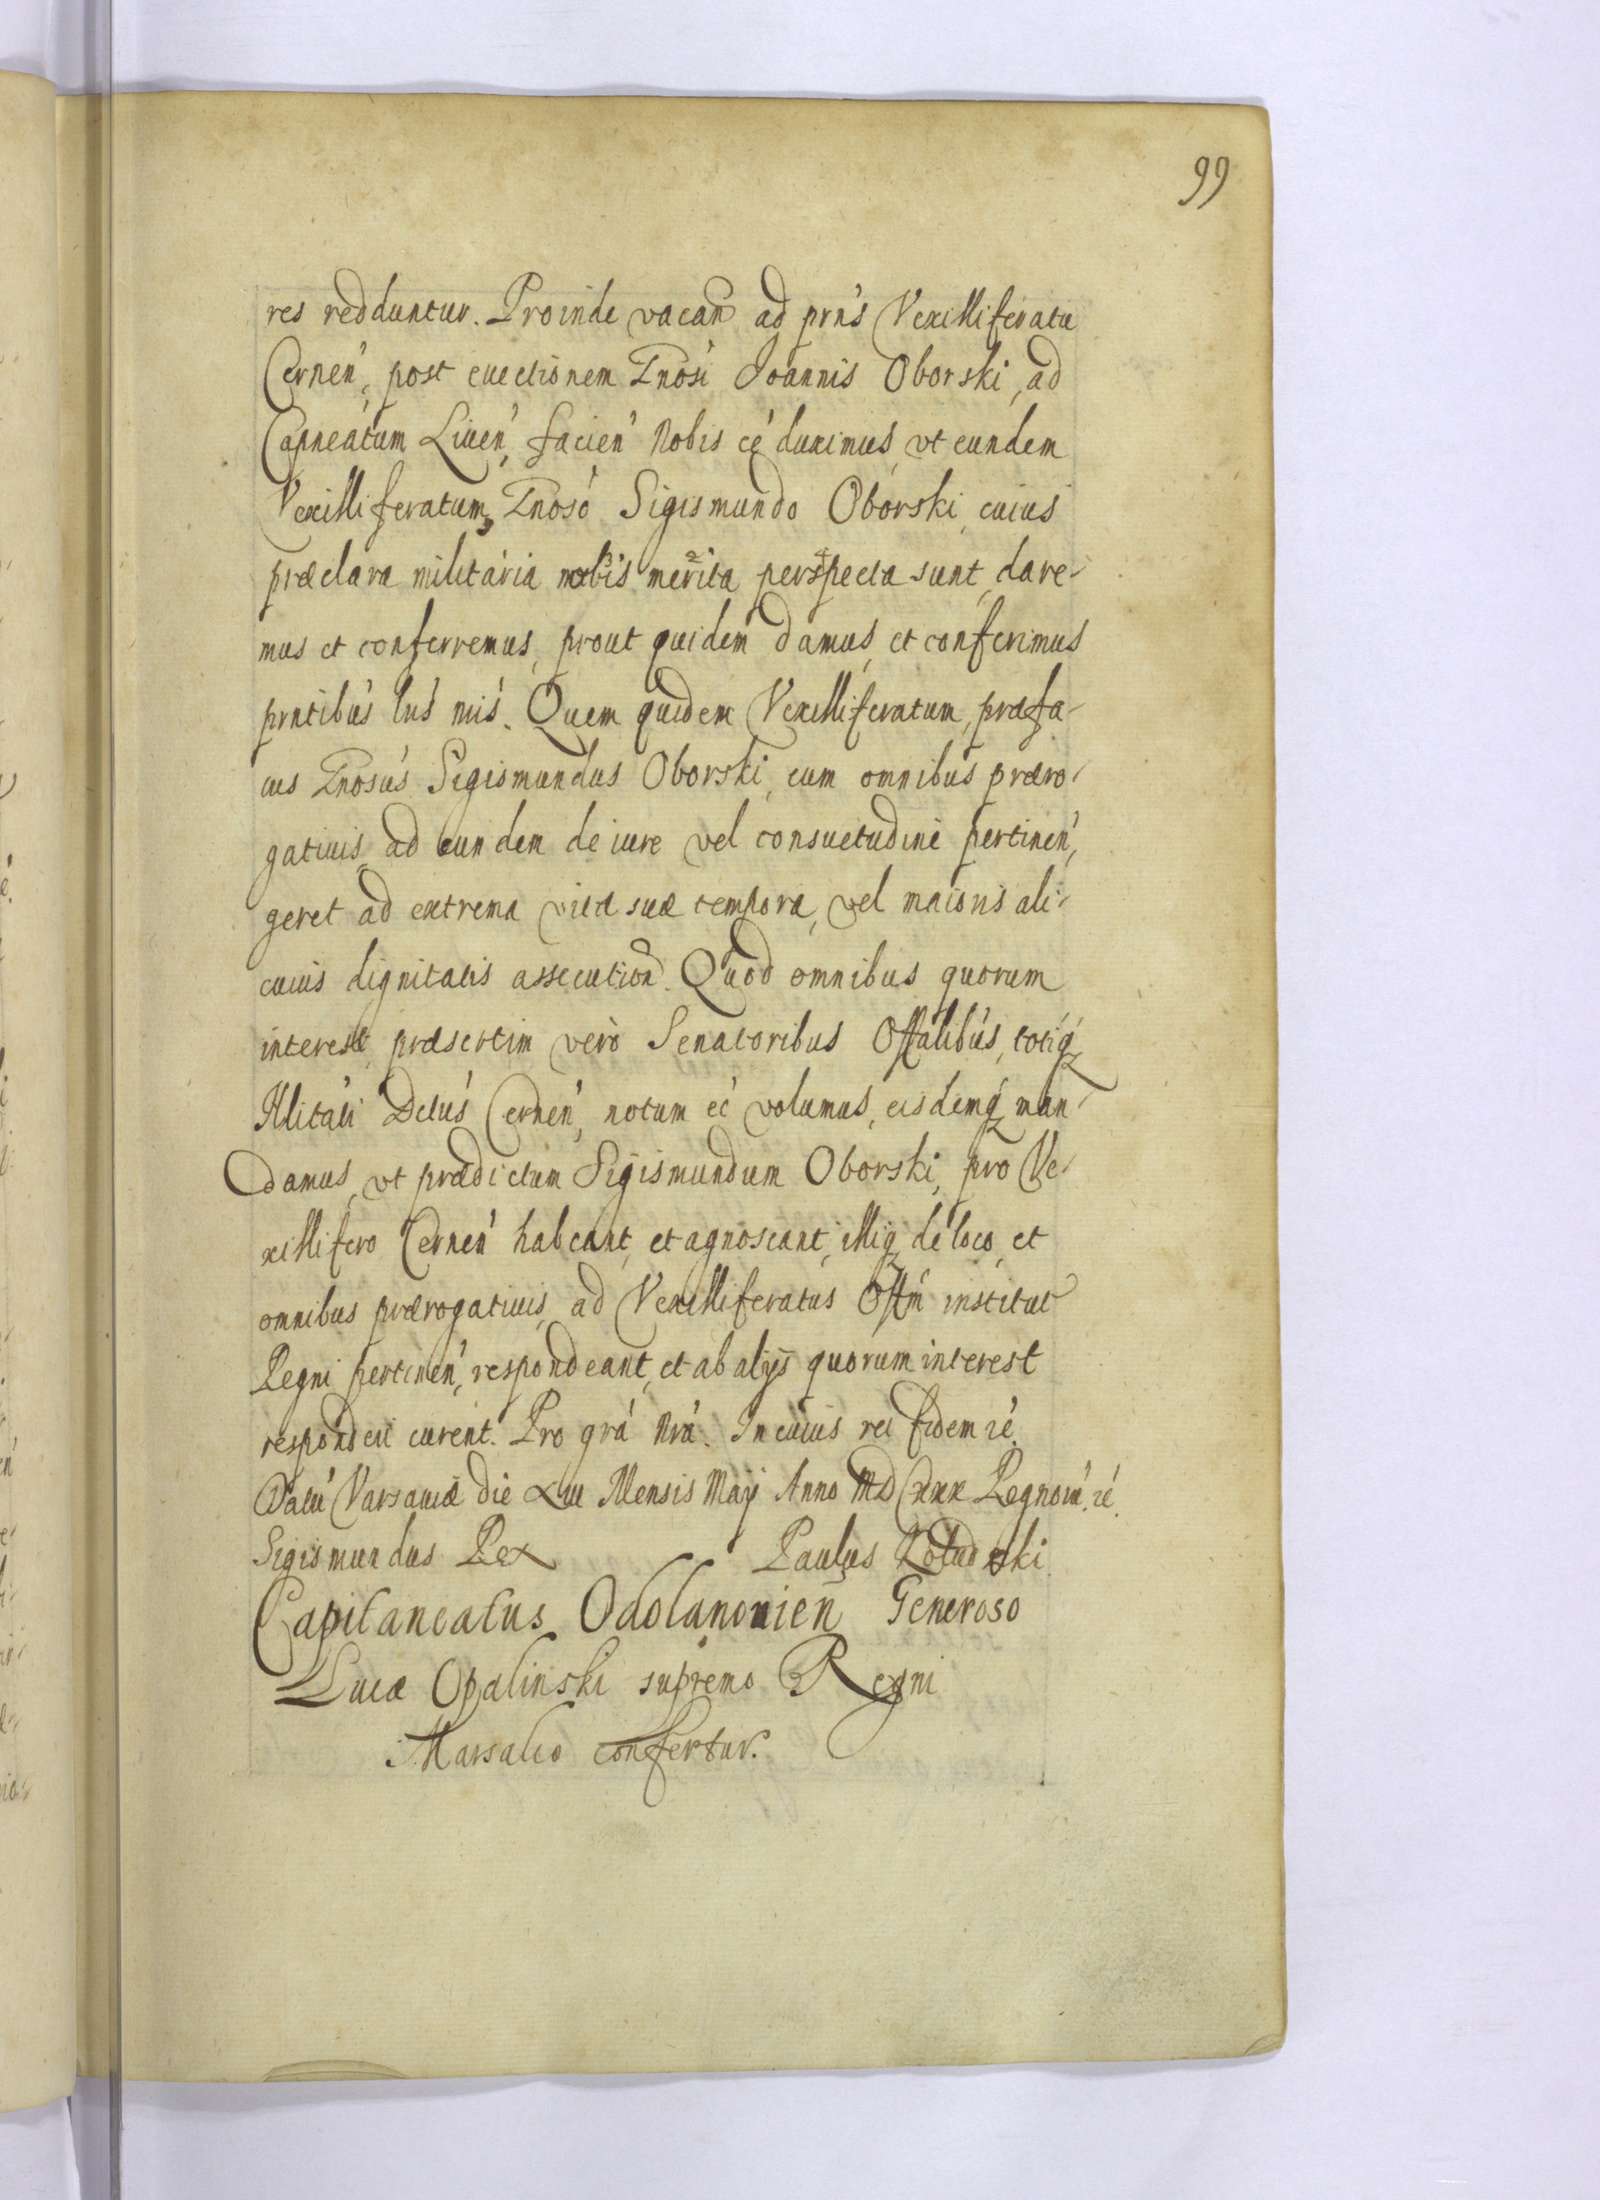 99
res redduntur. Proinde vacan ad prns Vexilliferatu
Cernen, post euectionem Gnosi Joannis Oborski, ad
Capneatum Liuen, facien Nobis ee duximus, vt eundem
Vexilliferatum, Gnoso Sigismundo Oborski, cuius
præclara militaria nobis merita perspecta sunt, dare-
mus et conferremus, prout quidem damus, et conferimus
prntibus lris nris. Quem quidem Vexilliferatum, præfa-
tus Gnosus Sigismundus Oborski, cum omnibus præro-
gatiuis, ad eundem de iure vel consuetudine pertinen,
geret ad extrema vitæ suæ tempora, vel maioris ali-
cuius dignitatis assecution. Quod omnibus quorum
interest, præsertim verò Senatoribus Offalibus, totiq
Nlitati Dctus Cernen, notum ee volumus, eisdemq man-
damus, vt prædictum Sigismundum Oborski, pro Ve-
xillifero Cernen habeant, et agnoscant, illiq de loco, et
omnibus prærogatiuis, ad Vexilliferatus Offm institut
Regni pertinen, respondeant, et ab alijs quorum interest
responderi curent. Pro gra nra. In cuius rei fidem
Datu Varsauiæ die Mensis Maij Anno MDCXXX Regnoru
Sigismundus Rex Paulus Kołudzki
Capitaneatus Odolanonien Generoso
Lucæ Opalinski supremo Regni
Marsalco confertur.